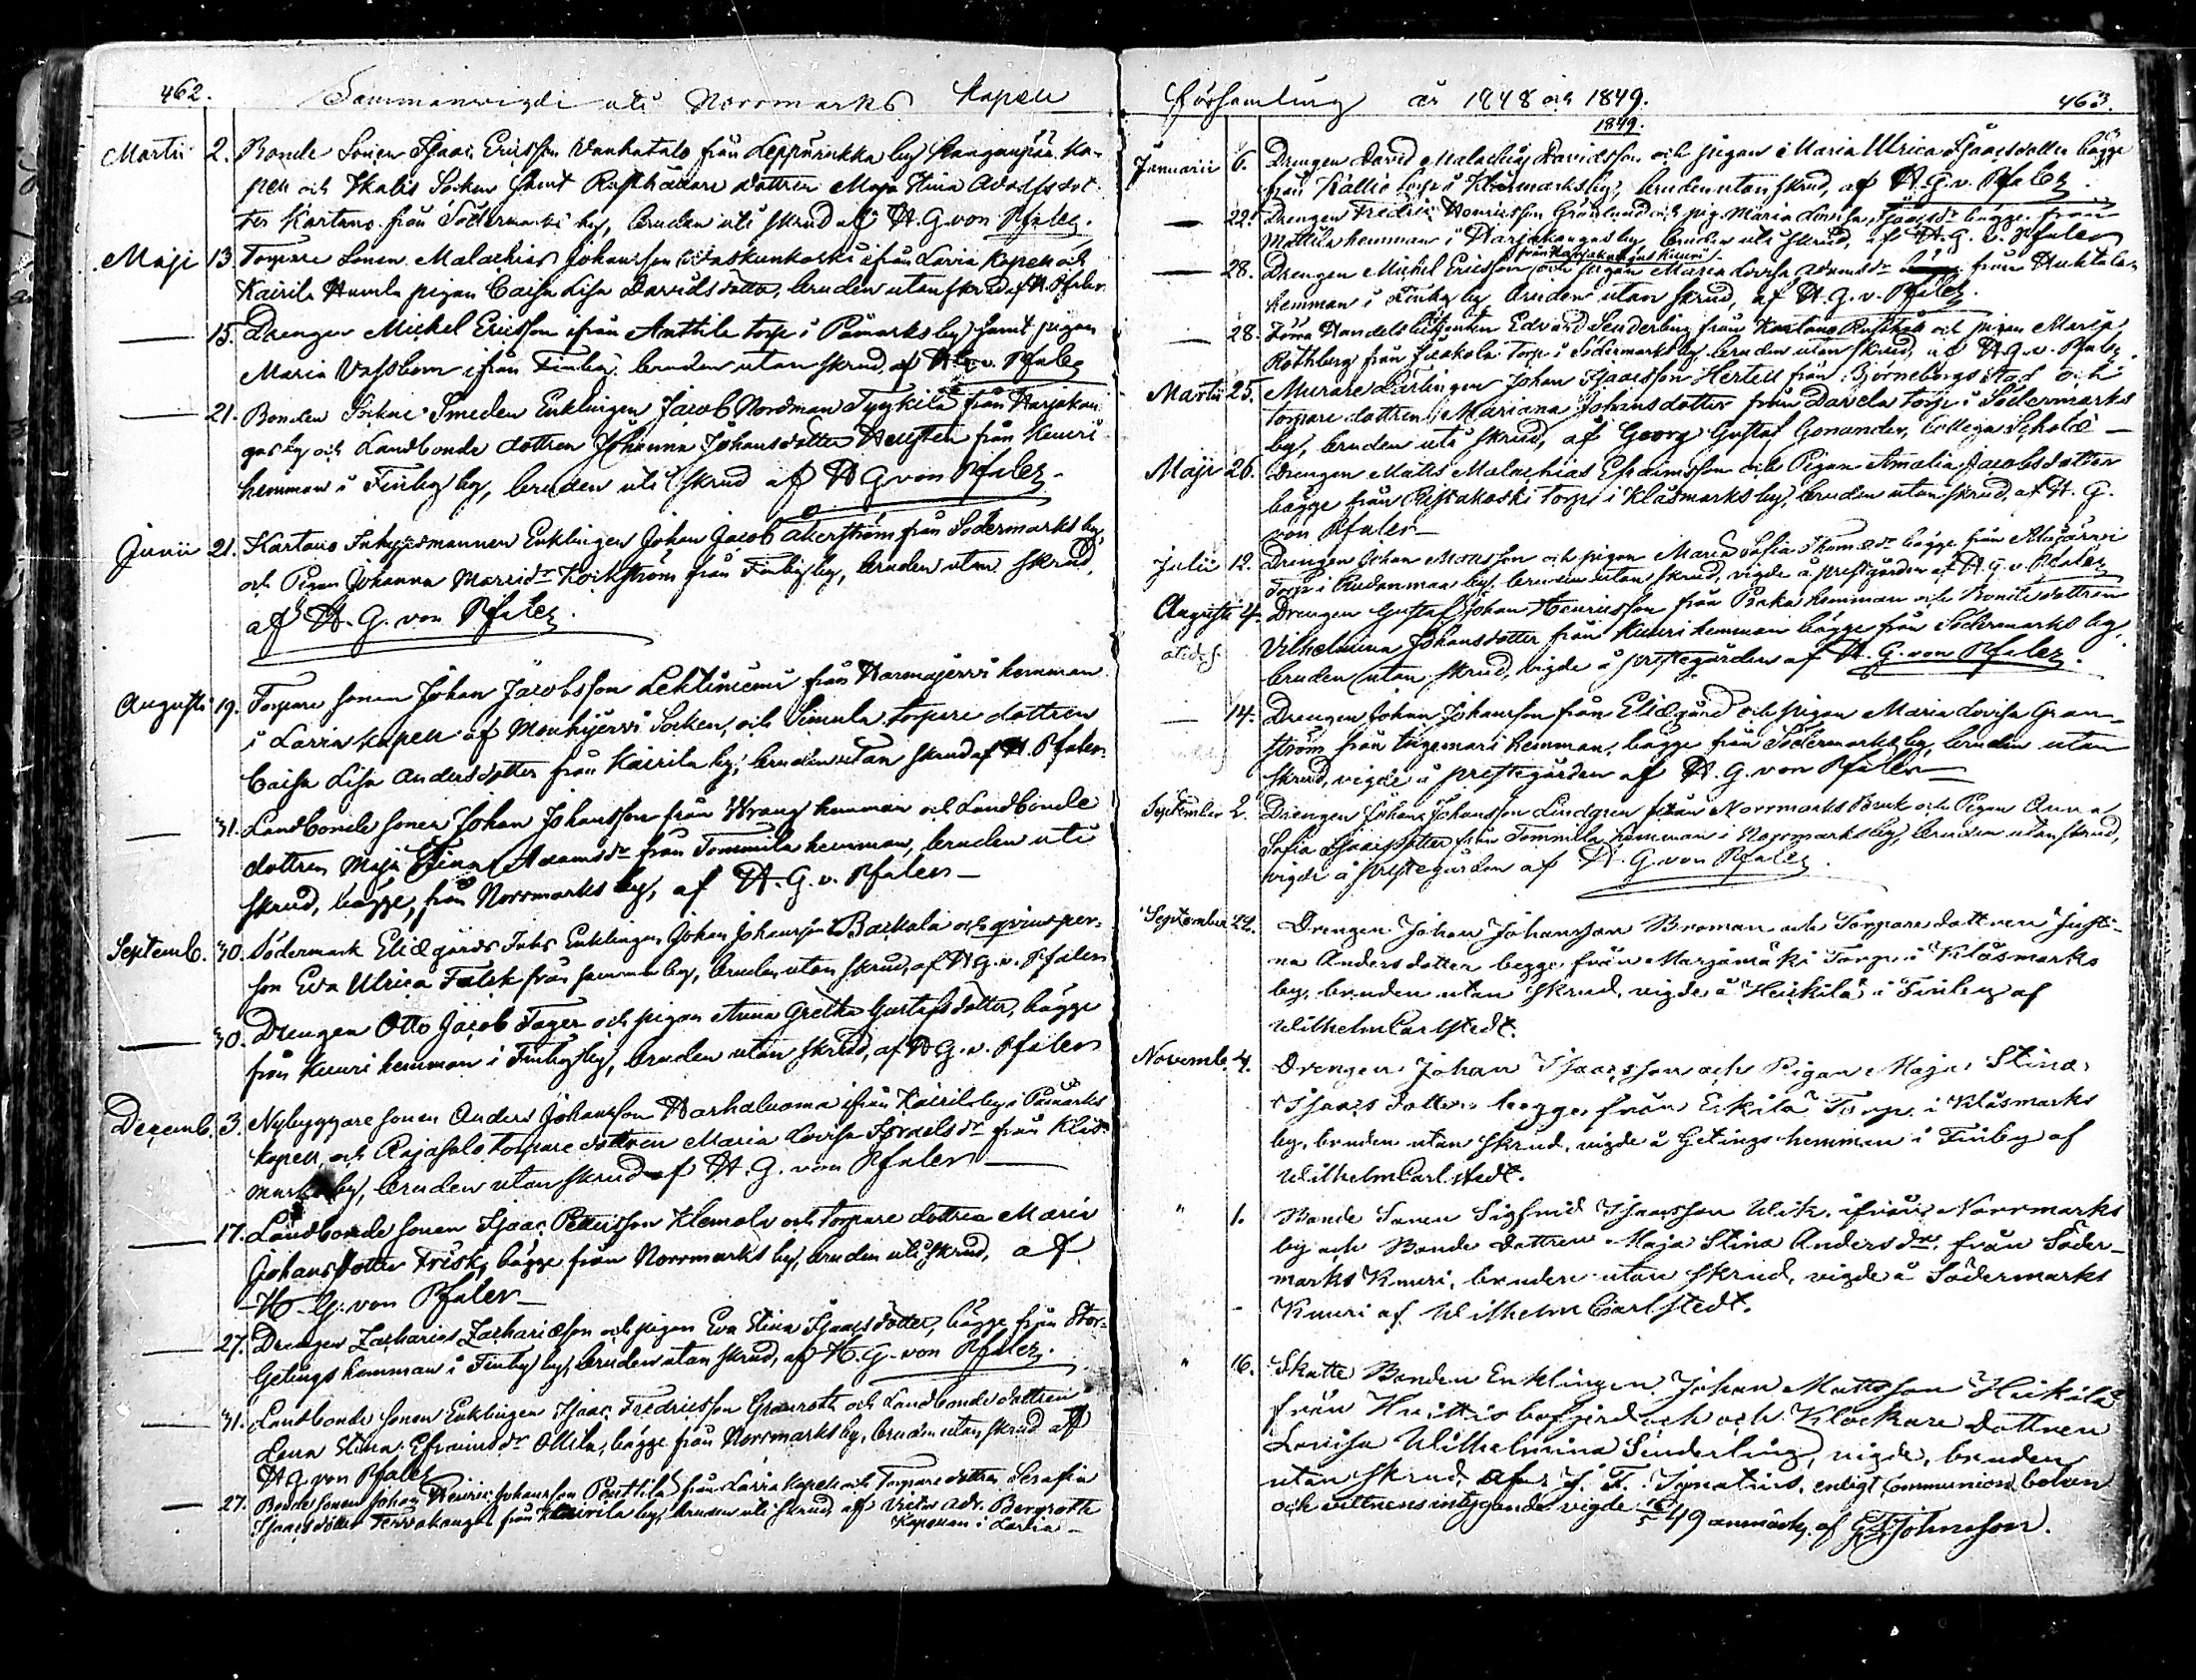 462.
Sammanvigde uti Norrmarks Kapell
Martii 2. Bonde Sonen Isaac Ericsson Vanhatalo från Leppärukka by Kaanganpää Ka-
pell och Ikalis Socken samt Rusthållare dottren Maja Stina Adolfsdot-
ter Kartano från Södermarks by, bruden uti skrud af H. G. von Pfaler.
Maji 13. Torpare Sonen Malachias Johansson ifrån Lavia Kapell och
Kairila Humla pigan Caisa Lisa Davidsdotter, bruden utan skrud af H. Pfaler.
— 15. Drengen Michel Ericsson ifrån Anttila torp i Påmarks by samt pigan
Maria Vessbom ifrån Finby, bruden utan skrud af H. G. v. Pfaler
— 21. Bonden Sockne Smeden Enklingen Jacob Nordman Tyykilä från Harjakan-
gas by och Landbonde dottren Johanna Johansdotter Heusten från Keuri
hemman i Finby by, bruden uti skrud af H G von Pfaler
Junii 21. Kartano Inhysesmannen Enklingen Johan Jacob Åkerström från Södermarks by,
och Pigan Johanna Mariædr Koikström från Finby by, bruden utan skrud,
af H. G. von Pfaler.
Augusti 19. Torpare sonen Johan Jacobsson Lektiniemi från Harmajervi hemman
i Lavia Kapell af Mouhijervi Socken, och Simula torpare dottren
Caisa Lisa Andersdotter från Kairila by, bruden utan skrud af H. Pfaler.
— 31. Landbonde sonen Johan Johansson från Wrang hemman och Landbonde
dottren Maja Stina Adamsdr från Tommila hemman, bruden uti
skrud, bägge från Norrmarks by, af H. G. v. Pfaler —
Septemb. 30. Södermark Eliægårds Inhs Enklingen Johan Johansson Backala och qvinsper-
son Eva Ulrica Falck från samma by, bruden utan skrud, af H G. v. Pfaler
— 30. Drengen Otto Jacob Fager och pigan Anna Gretha Gustafsdotter, bägge
från Kuuri hemman i Finby by, bruden utan skrud, af H G. v. Pfaler
Decemb. 3. Nybyggare sonen Anders Johansson Harhaluoma ifrån Kairila by i Påmarks
kapell, och Rajasalo torpare dottren Maria Lovisa Israelsdr från Klås-
marks by, bruden utan skrud af H. G. von Pfaler —
— 17. Landbonde sonen Isaac Pettersson Klemola och torpare dottren Maria
Johansdotter Frisk, bägge från Norrmarks by, bruden uti skrud, af
H. G. von Pfaler —
— 27. Drengen Zacharias Zachariæson och pigan Eva Stina Isaacsdotter, bägge från Stor-
Getings hemman i Finby by, bruden utan skrud, af H. G. von Pfaler.
— 31. Landbonde sonen Enklingen Isaac Fredricsson Granroth och Landbonde dottren
Lena Stina Efraimsdr Ollila, bägge från Norrmarks by, bruden utan skrud af
H G von Pfaler
— 27. Bonde sonen Johan Henric Johansson Penttilä från Lavia Kapell och Torpare dottren Serafia
Isaacsdotter Tervakangas från Kairila by, bruden uti skrud af Victor Adr. Bergroth
Kapellan i Lavia —
Församling år 1848 och 1849.
463.
1849.
Januarii 6. Drengen David Malachias Davidsson och pigan Maria Ulrica Isaacsdotter bägge
från Källie torp i Klåsmarks by, bruden utan skrud, af H. G. v. Pfaler.
— 22. Drengen Fredric Henricsson Grönlund och pig. Maria Lovisa Isaacsdr bägge från
Mattila hemman i Harjakangas by, bruden uti skrud, af H. G. v. Pfaler
från Harjakangas Kuuri
— 28. Drengen Michel Ericsson och pigan Maria Lovisa Adamsdr från Huhtala
hemman i Finby by, bruden utan skrud, af H. G. v. Pfaler.
— 28. Förra Handels betjenten Edvard Senderling från Kartano Rusthåll och pigan Maria
Rothberg från Jäakola Torp i Södermarks by, bruden utan skrud, af H. G. v. Pfaler.
Martii 25. Murare Lärlingen Johan Isaacsson Hertell från Björneborgs Stad och
torpare dottren Mariana Johansdotter från Davela torp i Södermarks
by, bruden uti skrud, af Georg Gustaf Gonander, Collega Scholæ —
Maji 26. Drengen Matts Malachias Efraimsson och Pigan Amalia Jacobsdotter
bägge från Ristakoski Torp i Klåsmarks by, bruden utan skrud, af H. G.
von Pfaler —
Julii 12. Drengen Johan Matsson och pigan Maria Sofia Thomædr bägge från Alajärvi
Torp i Rudanmaa by, bruden utan skrud, vigde å prestgården af H. G. v. Pfaler
Augusti 4. Drengen Gustaf Johan Henricsson från Penka hemman och Bonde dottren
Vilhelmina Johansdotter från Kuuri hemman bägge från Södermarks by,
bruden utan skrud, vigde å prestegården af H. G. von Pfaler.
— 14. Drengen Johan Johansson från Eliægård och pigan Maria Lovisa Gran-
ström från Ingemari hemman, bägge från Södermarks by, bruden utan
skrud, vigde å prestegården af H. G. von Pfaler —
September 2. Drengen Johan Johansson Lindgren från Norrmarks Bruk och Pigan Anna
Sofia Isaacsdotter från Tommila hemman i Norrmarks by, bruden utan skrud,
vigde å prestegården af H. G. von Pfaler
September 22. Drengen Johan Johansson Broman och Torpare dottren Justi-
na Andersdotter begge från Marjamäki Torp i Klåsmarks
by, bruden utan skrud, vigde å Heickilä i Finby af
Wilhelm Carlstedt.
Novemb. 4. Drengen Johan Isaacsson och Pigan Maja Stina
Isaacs dotter begge från Erkilä Torp i Klåsmarks
by, bruden utan skrud, vigde å Getings hemman i Finby af
Wilhelm Carlstedt.
" 1. Bonde Sonen Sigfrid Isaacsson Wik ifrån Norrmarks
by och Bonde dottren Maja Stina Andersdr från Söder-
marks Kuuri, bruden utan skrud, vigde å Södermarks
Kuuri af Wilhelm Carlstedt.
" 16. Skatte Bonden Enklingen Johan Mattsson Heikilä
från Huittisbofjerd och och Klockare dottren
Lovisa Wilhelmina Sinderling, vigde, bruden
utan skrud af J. F. Ignatius, enligt Communionboken
och vittnens intygande vigde 16/5 49 anmärkt. af G. Johnsson.